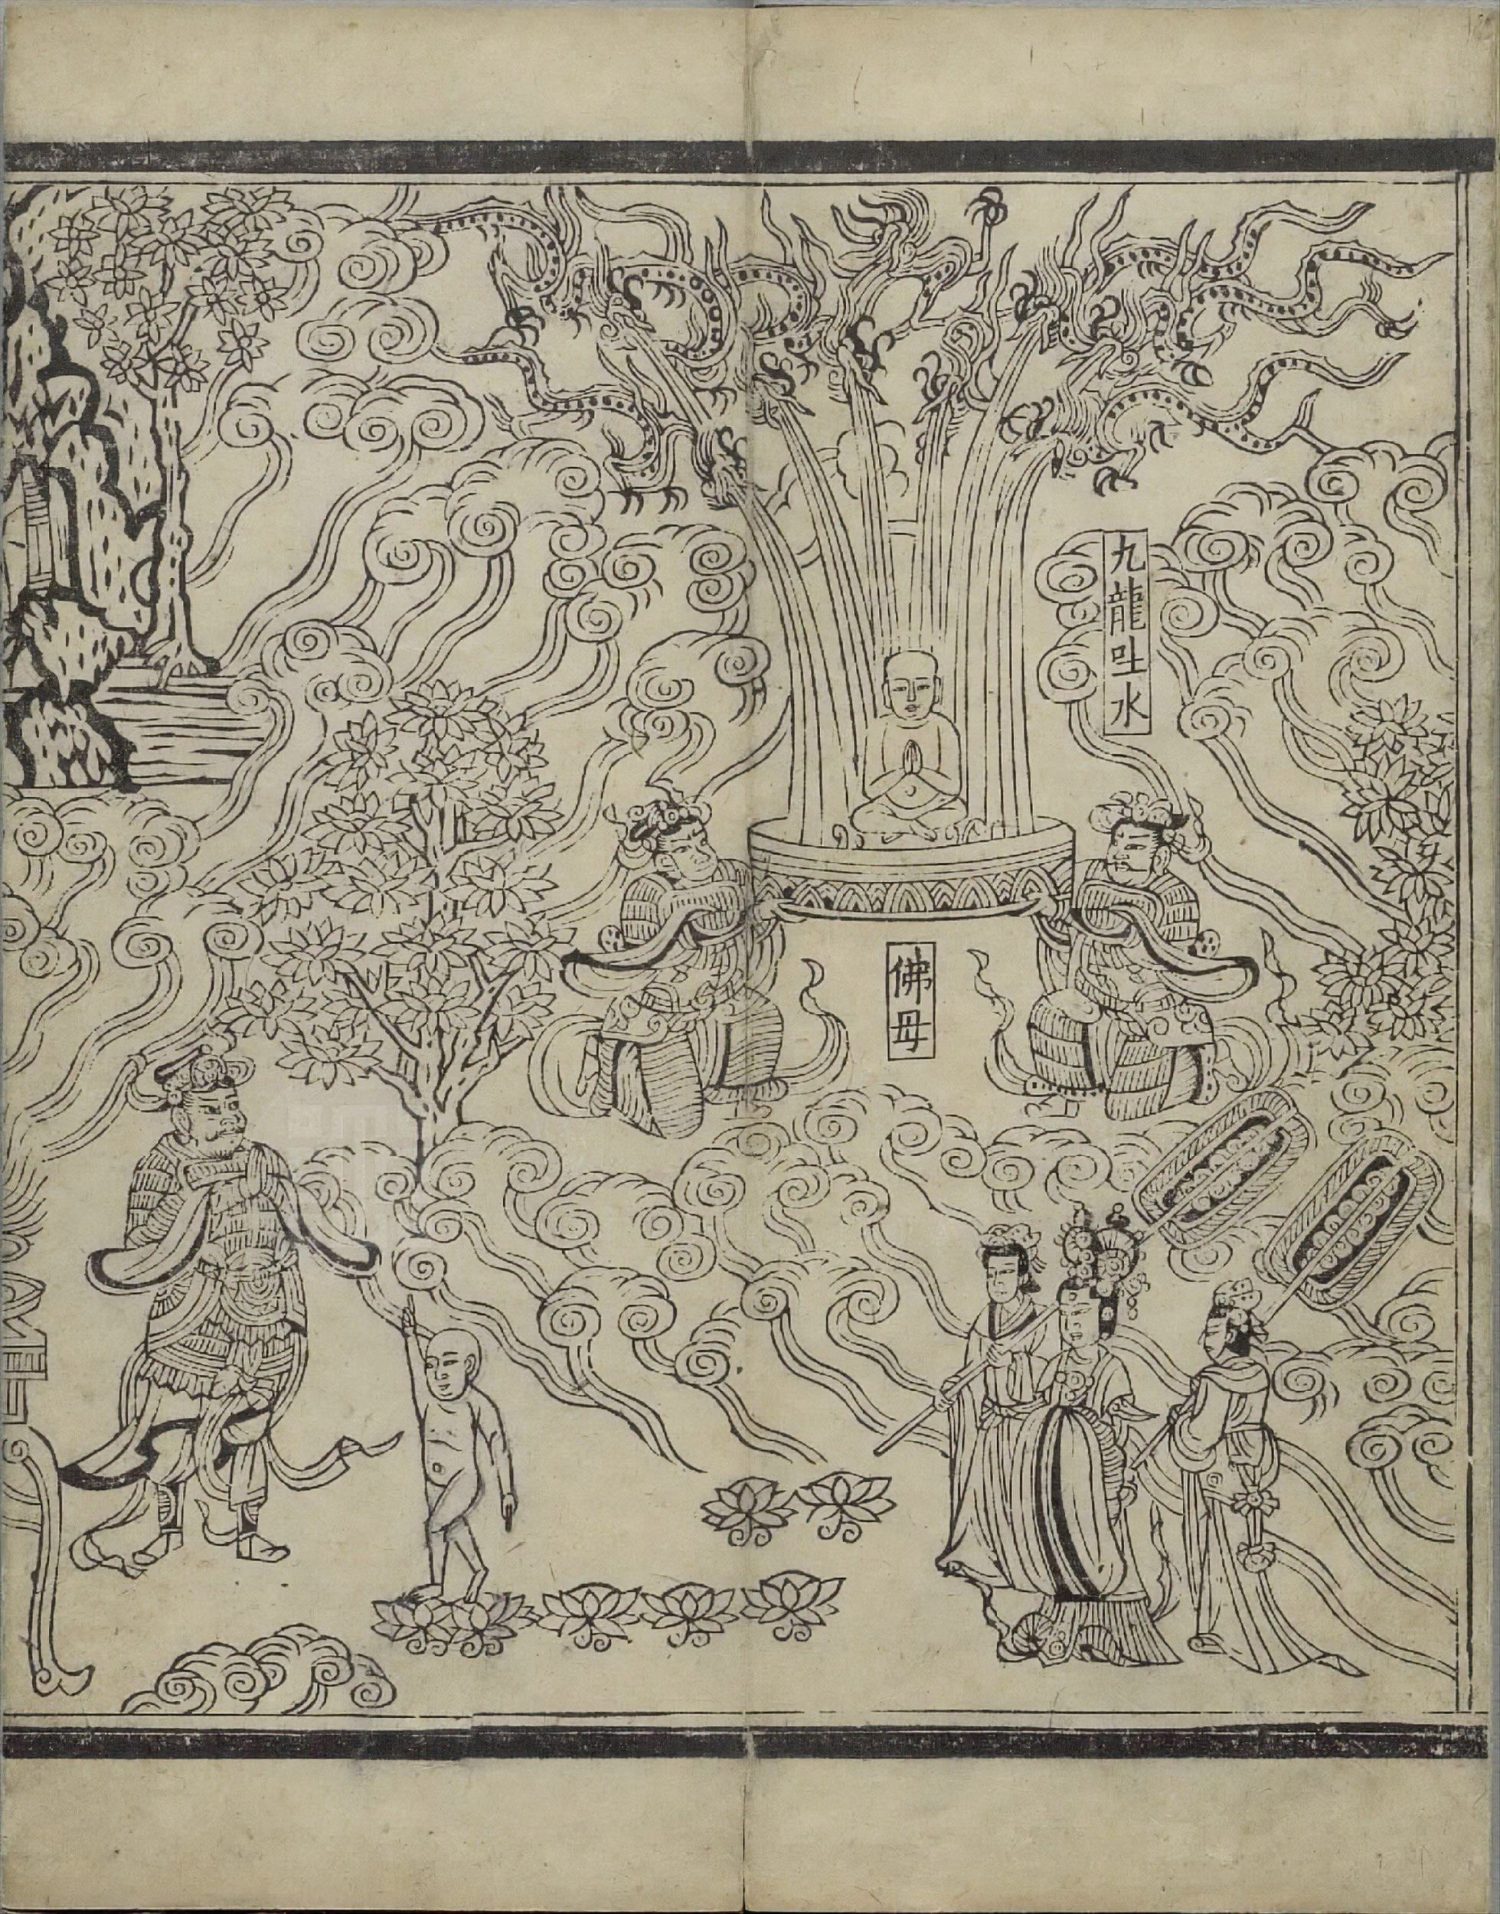 九龍吐水
佛母